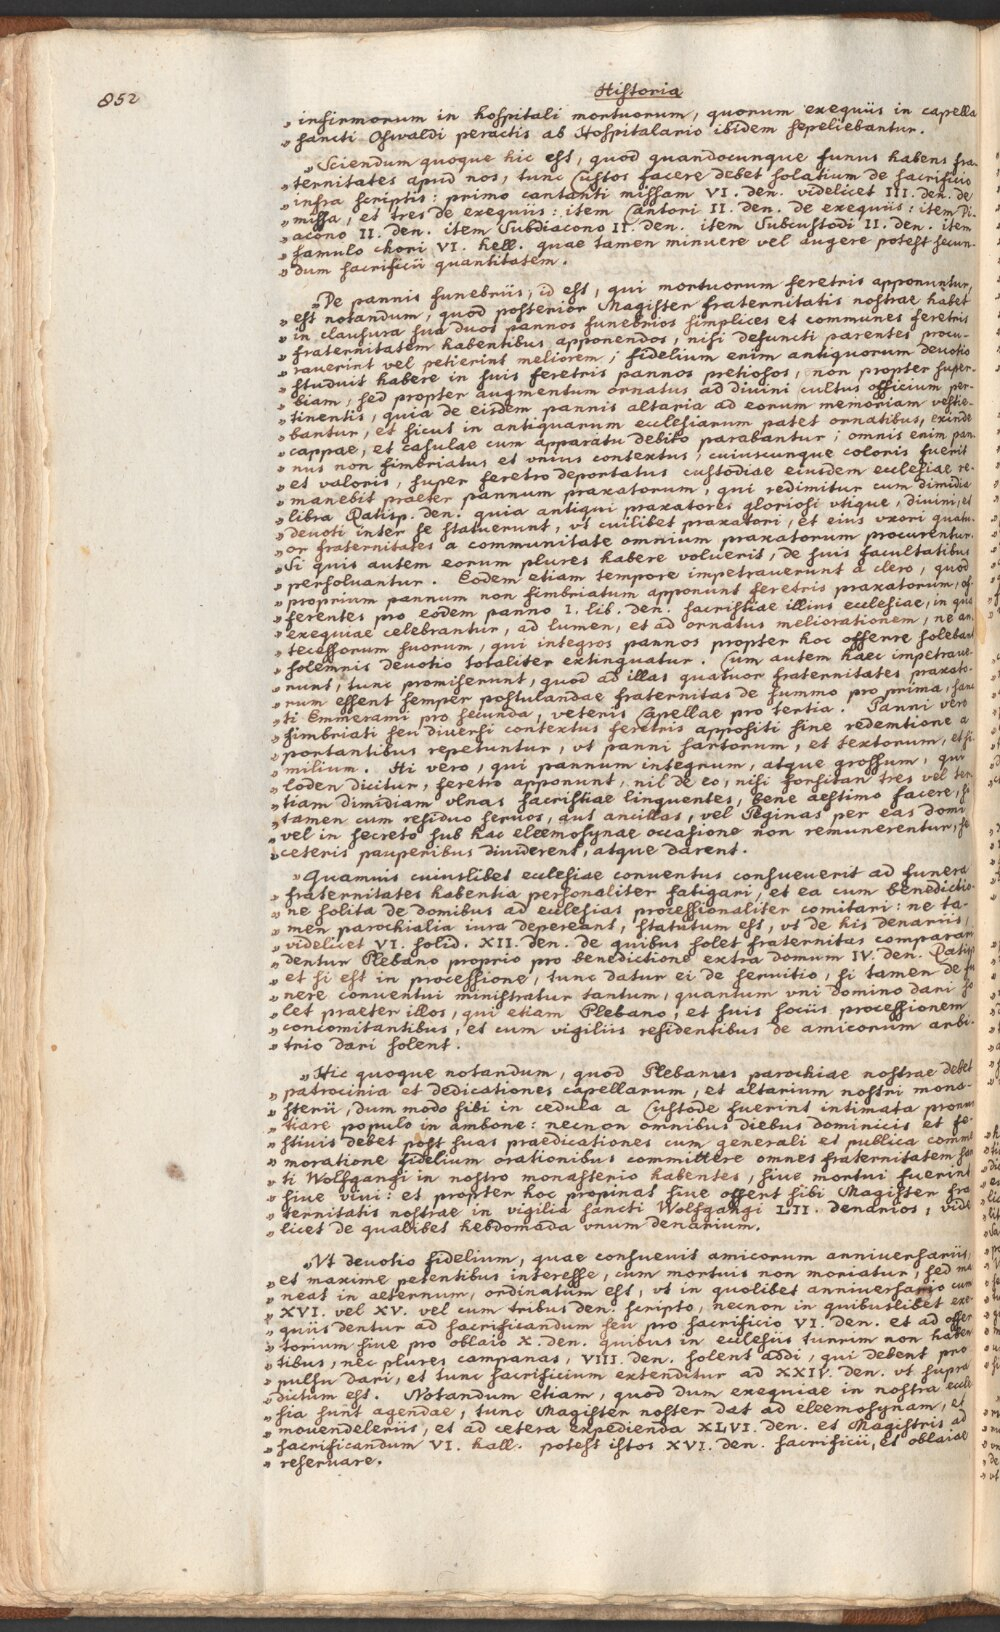 852
Historia
„infirmorum in hospitali mortuorum, quorum exequiis in capella
„sancti Oswaldi peractis ab Hospitalario ibidem sepeliebantur.
„Sciendum quoque hic est, quod quandocunque funus habens fra-
„ternitates apud nos, tunc Custos facere debet solatium de sacrificio
„infra scriptis: primo cantanti missam VI. den. videlicet III. den. de
„missa, et tres de exequiis: item Cantori II. den. de exequiis: item Di-
„acono II. den. item Subdiacono II. den. item Subcustodi II. den. item
„famulo chori VI. hell. quae tamen minuere vel augere potest secun-
„dum sacrificii quantitatem.
„De pannis funebriis, id est, qui mortuorum feretris apponuntur,
„est notandum, quod posterior Magister fraternitatis nostrae habet
„in clausura sua duos pannos funebrios simplices et communes feretris
„fraternitatem habentibus apponendos, nisi defuncti parentes procu-
„rauerint vel petierint meliorem; fidelium enim antiquorum deuotio
„studuit habere in suis feretris pannos pretiosos, non propter super-
„biam, sed propter augmentum ornatus ad diuini cultus officium per-
„tinentis, quia de eisdem pannis altaria ad eorum memoriam vestie-
„bantur, et sicut in antiquarum ecclesiarum patet ornatibus, exinde
„cappae, et casulae cum apparatu debito parabantur; omnis enim pan-
„nus non fimbriatus et vnius contextus, cuiuscunque coloris fuerit
„et valoris, super feretro deportatus custodiae eiusdem ecclesiae re-
„manebit praeter pannum praxatorum, qui redimitur cum dimidia
„libra Ratisp. den. quia antiqui praxatores gloriosi vtique, diuini, et
„deuoti inter se statuerunt, vt cuilibet praxatori, et eius vxori quatu-
„or fraternitates a communitate omnium praxatorum procurentur.
„Si quis autem eorum plures habere voluerit, de suis facultatibus
„persoluantur. Eodem etiam tempore impetrauerunt a clero, quod
„proprium pannum non fimbriatum apponunt feretris praxatorum, of-
„ferentes pro eodem panno I. lib. den. sacristiae illius ecclesiae, in qua
„exequiae celebrantur, ad lumen, et ad ornatus meliorationem, ne an-
„tecessorum suorum, qui integros pannos propter hoc offerre solebant
„solemnis deuotio totaliter extinguatur. Cum autem haec impetraue-
„runt, tunc promiserunt, quod ad illas quatuor fraternitates praxato-
„rum essent semper postulandae fraternitas de summo pro prima, sanc-
„ti Emmerami pro secunda, veteris Capellae pro tertia. Panni vero
„fimbriati seu diuersi contextus feretris appositi sine redemtione a
„portantibus repetuntur, vt panni sartorum, et textorum, et si-
„milium. Hi vero, qui pannum integrum, atque grossum, qui
„loden dicitur, feretro apponunt, nil de eo, nisi forsitan tres vel ter-
„tiam dimidiam vlnas sacristiae linquentes, bene aestimo facere, si
„tamen cum residuo seruos, aut ancillas, vel Peginas per eas domi
„vel in secreto sub hac eleemosynae occasione non remunerentur, se
„ceteris pauperibus diuiderent, atque darent.
„Quamuis cuiuslibet ecclesiae conuentus consueuerit ad funera
„fraternitates habentia personaliter fatigari, et ea cum benedictio-
„ne solita de domibus ad ecclesias processionaliter comitari: ne ta-
„men parochialia iura depereant, statutum est, vt de his denariis,
„videlicet VI. solid. XII. den. de quibus solet fraternitas comparari,
„dentur Plebano proprio pro benedictione extra domum IV. den. Ratisp.
„et si est in processione, tunc datur ei de seruitio, si tamen de fu-
„nere conuentui ministratur tantum, quantum vni domino dari so-
„let praeter illos, qui etiam Plebano, et suis sociis processionem
„concomitantibus, et cum vigiliis residentibus de amicorum arbi-
„trio dari solent.
„Hic quoque notandum, quod Plebanus parochiae nostrae debet
„patrocinia et dedicationes capellarum, et altarium nostri mona-
„sterii, dum modo sibi in cedula a Custode fuerint intimata pronun-
„tiare populo in ambone: necnon omnibus diebus dominicis et fe-
„stiuis debet post suas praedicationes cum generali et publica comme-
„moratione fidelium orationibus committere omnes fraternitatem san-
„ti Wolfgangi in nostro monasterio habentes, siue mortui fuerint
„siue viui: et propter hoc propinat siue offert sibi Magister fra-
„ternitatis nostrae in vigilia sancti Wolfgangi LII. denarios, vide-
„licet de qualibet hebdomada vnum denarium.
„Vt deuotio fidelium, quae consueuit amicorum anniuersariis,
„et maxime petentibus interesse, cum mortuis non moriatur, sed ma-
„neat in aeternum, ordinatum est, vt in quolibet anniuersario cum
„XVI. vel XV. vel cum tribus den. scripto, necnon in quibuslibet exe-
„quiis dentur ad sacrificandum seu pro sacrificio VI. den. et ad offer-
„torium siue pro oblaio X. den. quibus in ecclesiis turrim non haben-
„tibus, nec plures campanas, VIII. den. solent addi, qui debent pro
„pulsu dari, et tunc sacrificium extenditur ad XXIV. den. vt supra
„dictum est. Notandum etiam, quod dum exequiae in nostra eccle-
„sia sunt agendae, tunc Magister noster dat ad eleemosynam, et
„mouendeleriis, et ad cetera expedienda XLVI. den. et Magistris ad
„sacrificandum VI. hall. potest istos XVI. den. sacrificii, et oblaiae
„reseruare.